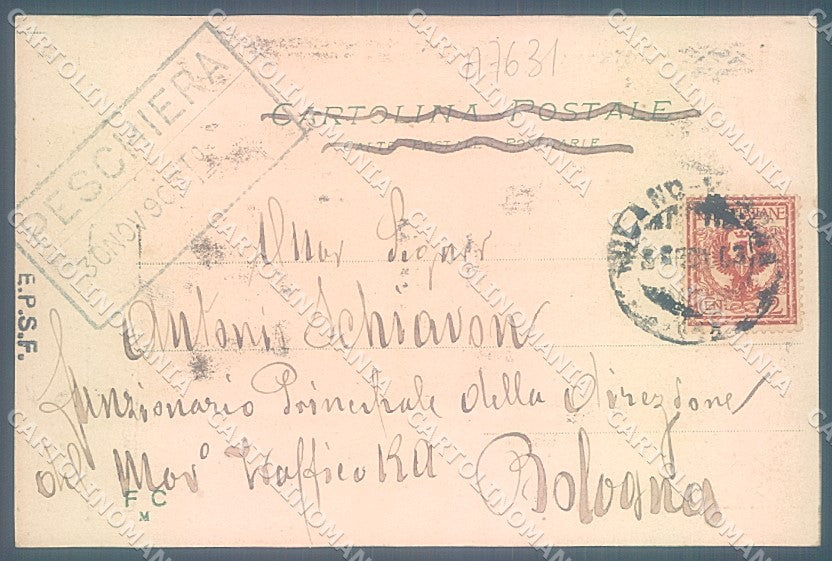 07631
CARTOLINA POSTALE
CARTE POSTALE
PESCHIERA
30 NOV 90
E.P.S.F.
Signor
Antonio Schiavon
Funzionario Principale della Direzione
del Mov° Traffico RA
Bologna
CENT. 2
F C
M
CARTOLINOMANIA